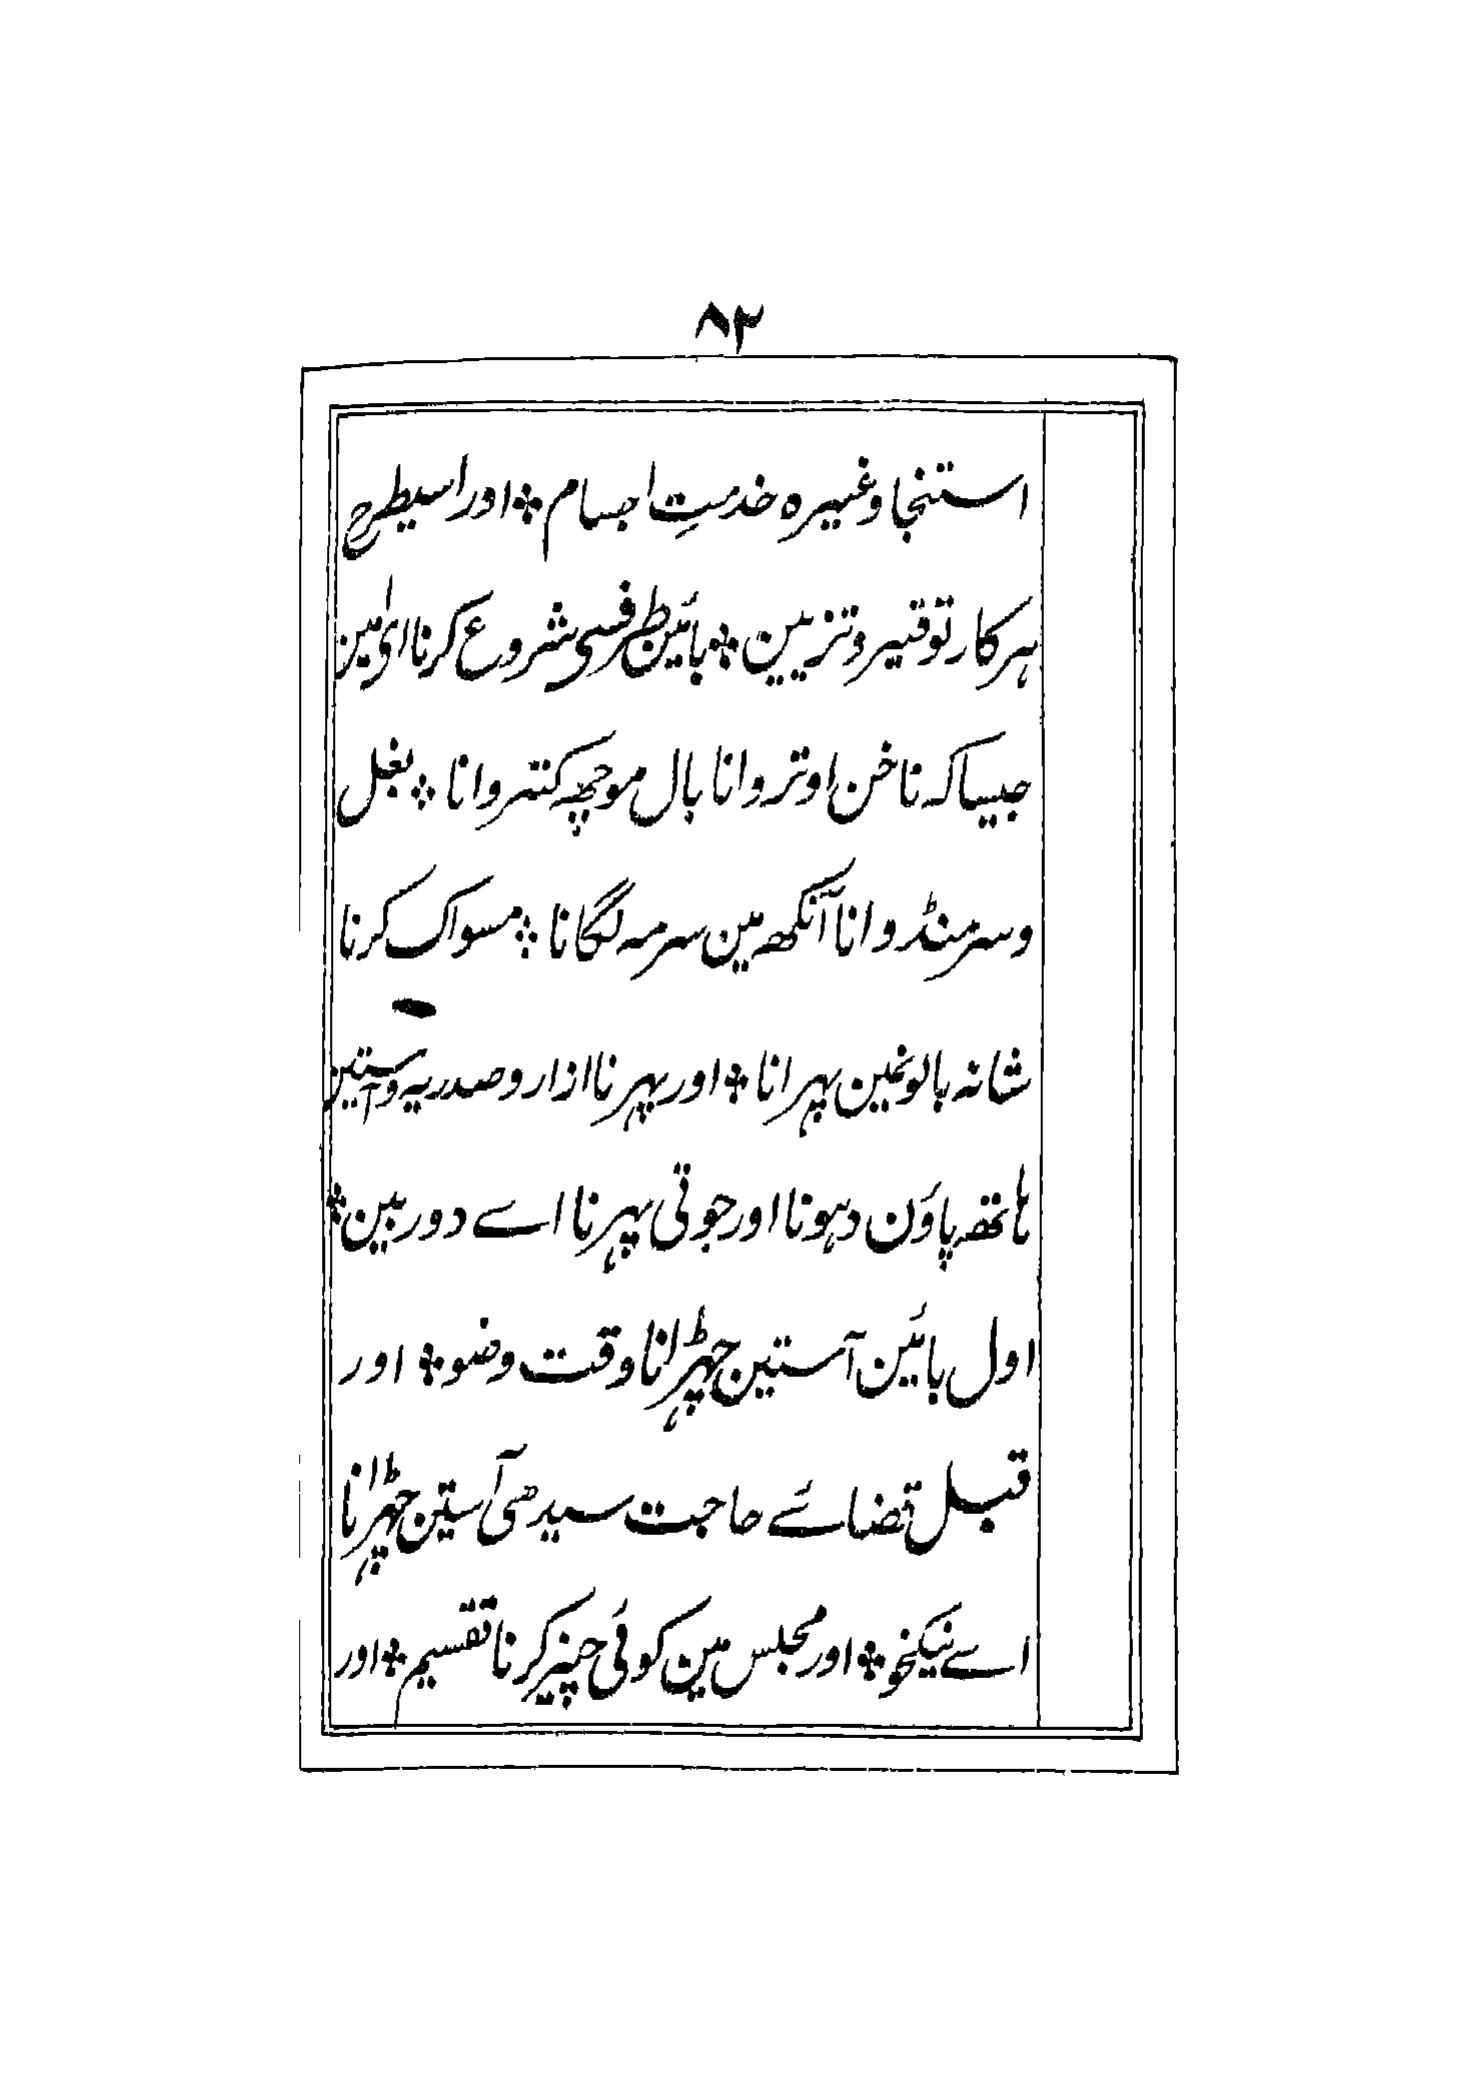 ۸۲
استنجا وغیرہ خدمتِ اجسام ؞ اور اسیطرح
ہر کار توقیر و تزیین ؞ بائین طرفسی شروع کرنا ای مین
جیسا کہ ناخن اوتروانا بال موچھہ کتروانا ؞ بغل
وسر منڈوانا آنکھ مین سرمہ لگانا ؞ مسواک کرنا
شانہ بالونمین پہرانا ؞ اور پہرنا ازار و صدریہ و آستین
ہاتھہ پاؤن دہونا اور جوتی پہرنا اے دوربین ؞
اول بائین آستین چہڑانا وقت وضو ؞ اور
قبل قضائے حاجت سیدھی آستین چہڑانا
اے نیکخو ؞ اور مجلس مین کوئی چیز کرنا تقسیم ؞ اور